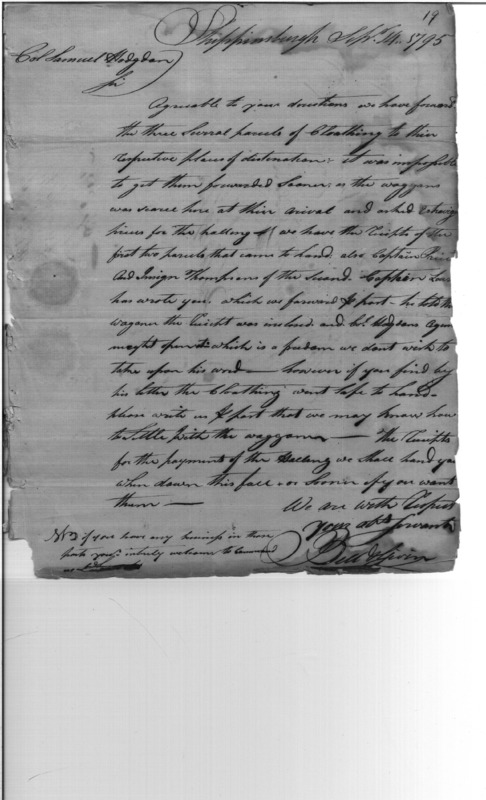 19
Shippinsburgh Sepr. 14. 1795
Col Samuel Hodgdon
Sir
Agreable to your directions we have forward
the three Several parcels of Cloathing to thier
respective places of destination: it was impossible
to get them forwarded Sooner: as the waggons
was scarce here at thier arival and asked
prices for the halling of we have the Ricipts of the
first two parcels that came to hand. also Captain
And Insign Thompsons of the Second. Captain
has wrote you. which we forward post he
wagoner the was inclosd. and Col. Hodgdons Agent
might open it which is a freedom we dont wish to
take upon his word — however if you find by
his letter the Cloathing went safe to hand
please write us post that we may know how
to Settle with the waggoner — The Ricipts
for the payment of the Halling we Shall hand you
when down this fall or Sooner if you want
them — We are with Respect
your obt Servants
NB if you have any business in these
parts your intirely welcome to Command